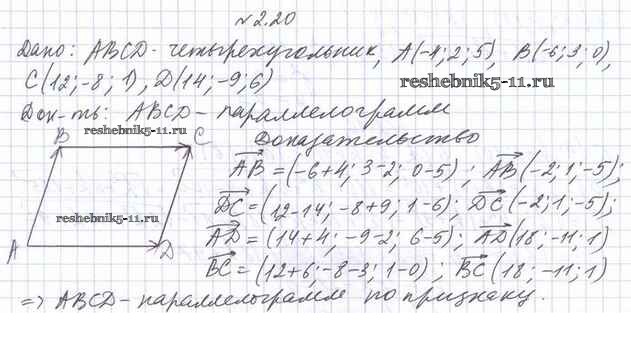 № 2.20
Дано: ABCD - четырехугольник, A(-4; 2; 5), B(-6; 3; 0),
C(12; -8; 1), D(14; -9; 6)
reshebnik5-11.ru
Док-ть: ABCD - параллелограмм
reshebnik5-11.ru
Доказательство
B C
AB = (-6+4; 3-2; 0-5); AB(-2; 1; -5);
DC = (12-14; -8+9; 1-6); DC(-2; 1; -5);
reshebnik5-11.ru
AD = (14+4; -9-2; 6-5); AD(18; -11; 1)
A D
BC = (12+6; -8-3; 1-0); BC(18; -11; 1)
=> ABCD - параллелограмм по признаку.